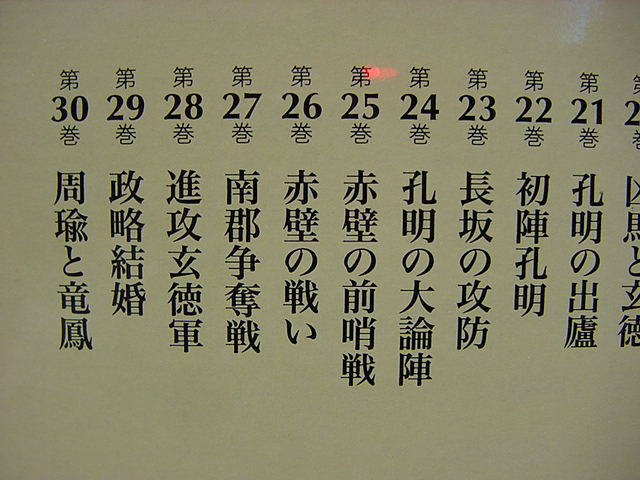 凶馬と玄徳
第21巻 孔明の出廬
第22巻 初陣孔明
第23巻 長坂の攻防
第24巻 孔明の大論陣
第25巻 赤壁の前哨戦
第26巻 赤壁の戦い
第27巻 南郡争奪戦
第28巻 進攻玄徳軍
第29巻 政略結婚
第30巻 周瑜と竜鳳